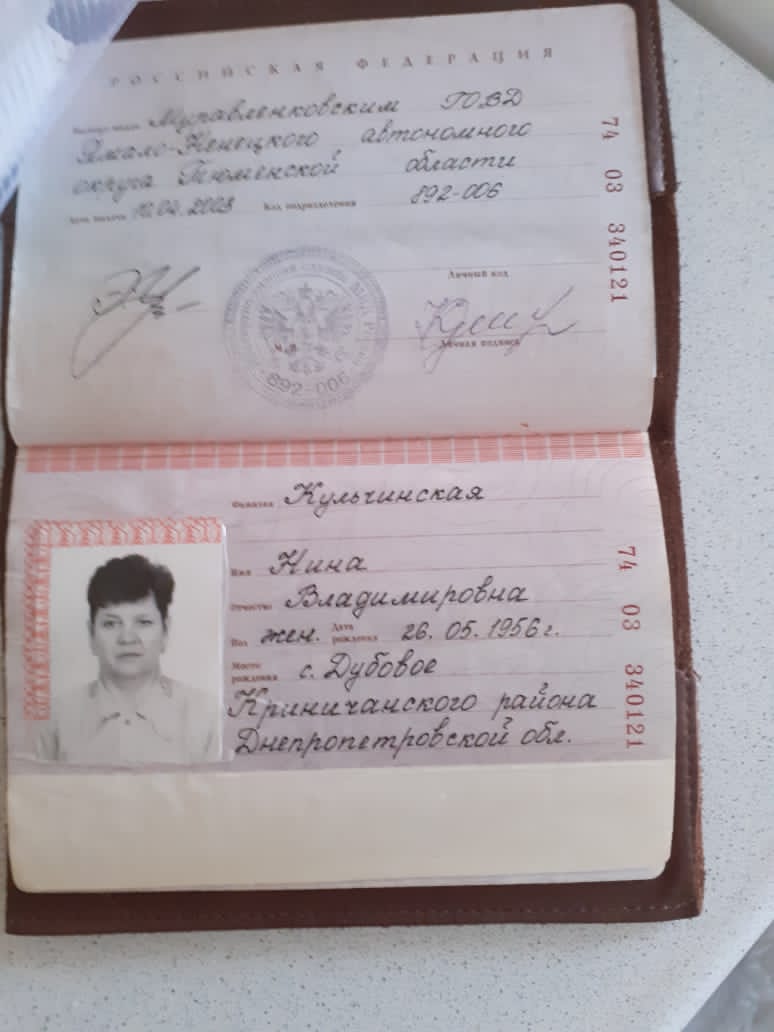 РОССИЙСКАЯ ФЕДЕРАЦИЯ
Паспорт выдан Муравленковским ГОВД
Ямало-Ненецкого автономного
округа Тюменской области
Дата выдачи 10.04.2003 Код подразделения 892-006
74 03 340121
Личный код
Личная подпись
М.П.
892-006
Фамилия Кульчинская
Имя Нина
Отчество Владимировна
Пол жен. Дата рождения 26.05.1956г.
Место рождения с. Дубовое
Криничанского района
Днепропетровской обл.
74 03 340121